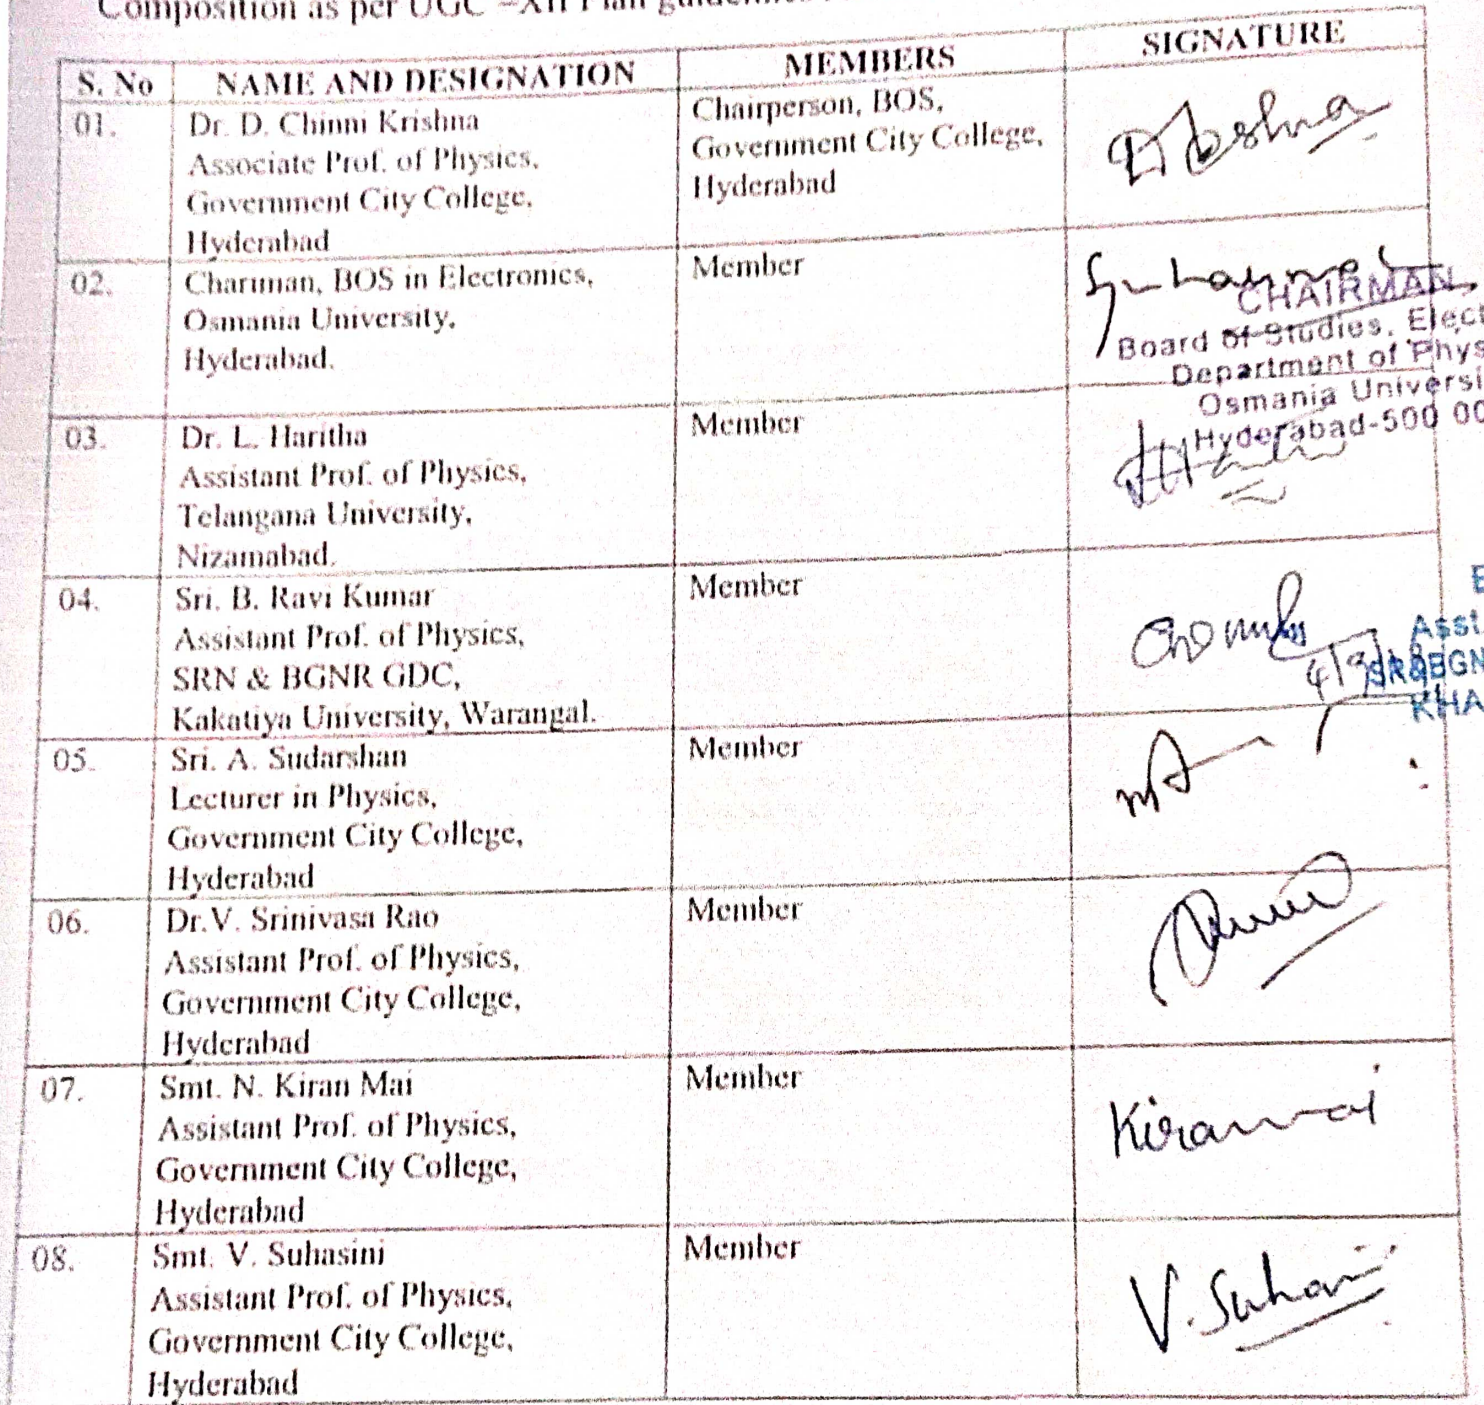 Composition as per UGC –XII Plan
S. No NAME AND DESIGNATION MEMBERS SIGNATURE
01. Dr. D. Chinni Krishna
Associate Prof. of Physics,
Government City College,
Hyderabad
Chairperson, BOS,
Government City College,
Hyderabad
02. Chariman, BOS in Electronics,
Osmania University,
Hyderabad.
Member
CHAIRMAN
Board of Studies, Elect
Department of Phys
Osmania Universi
Hyderabad-500 00
03. Dr. L. Haritha
Assistant Prof. of Physics,
Telangana University,
Nizamabad.
Member
04. Sri. B. Ravi Kumar
Assistant Prof. of Physics,
SRN & BGNR GDC,
Kakatiya University, Warangal.
Member
Asst.
SR&BGN
KHA
05. Sri. A. Sudarshan
Lecturer in Physics,
Government City College,
Hyderabad
Member
06. Dr.V. Srinivasa Rao
Assistant Prof. of Physics,
Government City College,
Hyderabad
Member
07. Smt. N. Kiran Mai
Assistant Prof. of Physics,
Government City College,
Hyderabad
Member
Kiranmai
08. Smt. V. Suhasini
Assistant Prof. of Physics,
Government City College,
Hyderabad
Member
V. Suhasini